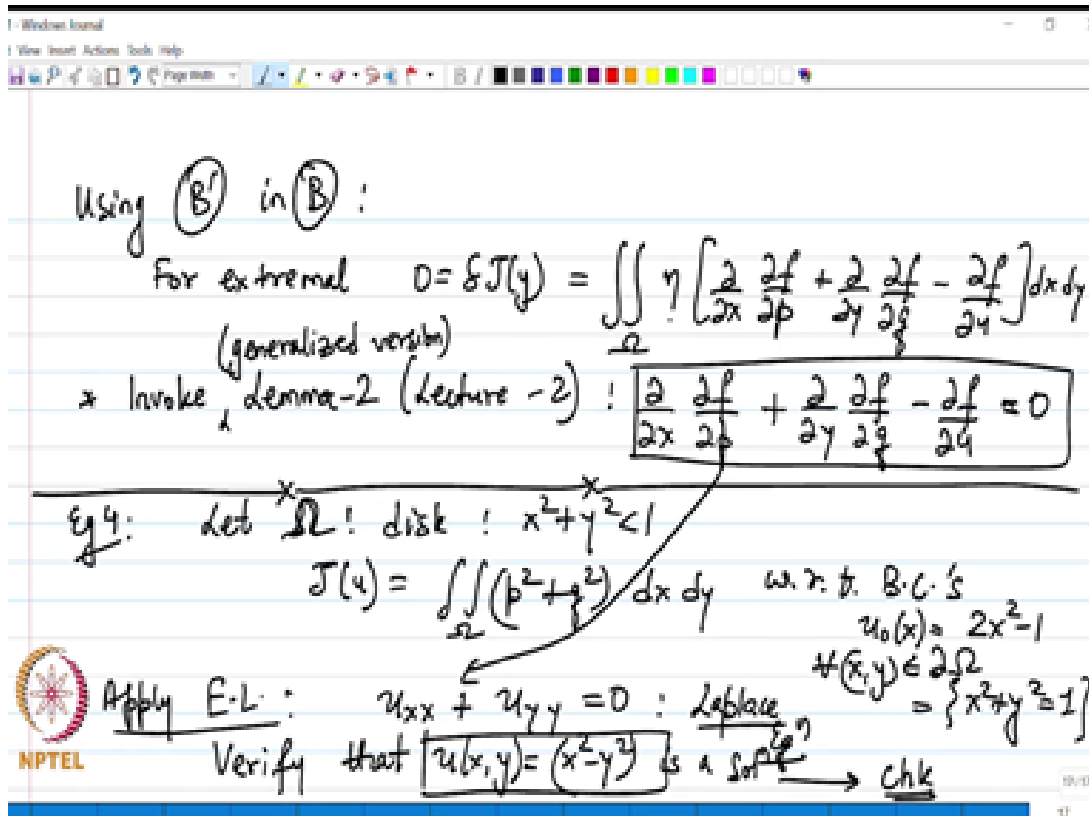 - Windows Journal
View Insert Actions Tools Help
Page Width
B I
Using (B') in (B) :
For extremal 0 = δJ(y) = ∬_Ω η [∂/∂x ∂f/∂p + ∂/∂y ∂f/∂q - ∂f/∂u] dx dy
(generalized version)
* Invoke Lemma-2 (Lecture - 2) : ∂/∂x ∂f/∂p + ∂/∂y ∂f/∂q - ∂f/∂u = 0
Eg 4: Let Ω : disk : x²+y²<1
J(u) = ∬_Ω (p²+q²) dx dy w.r.t. B.C.'s
u₀(x) = 2x²-1
∀(x,y) ∈ ∂Ω
= {x²+y²=1}
Apply E.L.: u_xx + u_yy = 0 : Laplace eqⁿ
Verify that u(x,y) = (x²-y²) is a solⁿ → chk
NPTEL